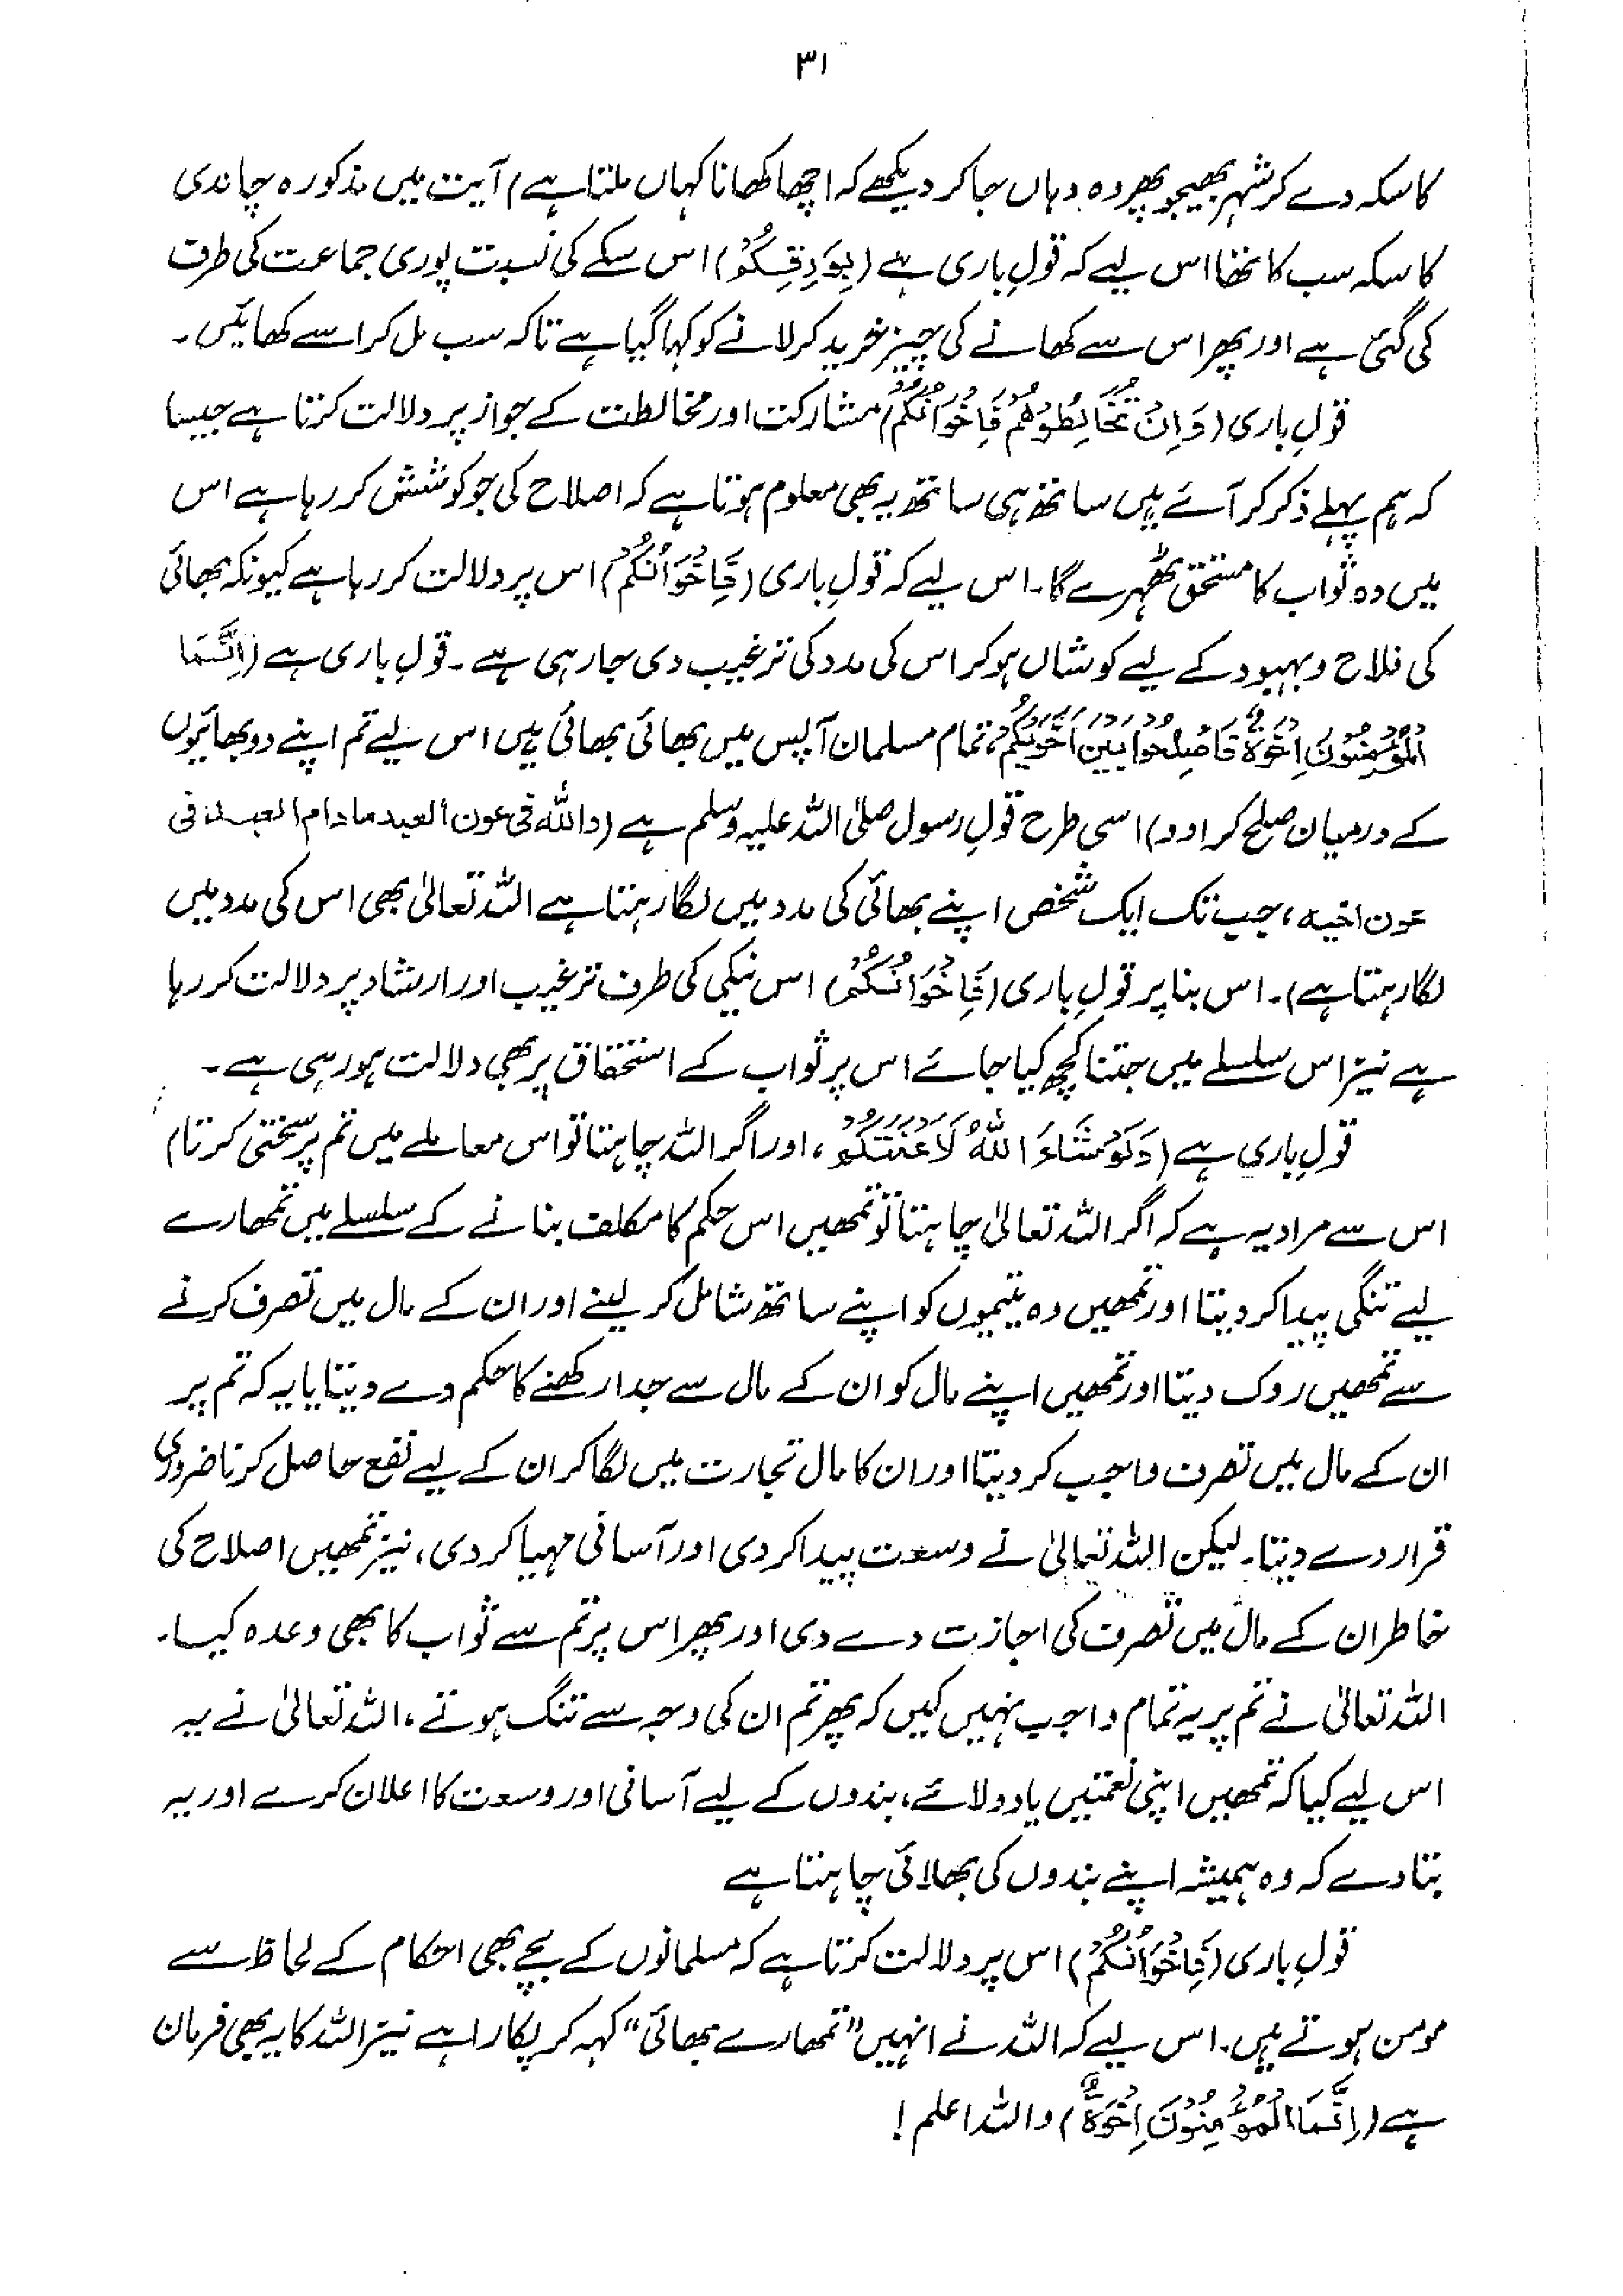 ۳۱
کا سکہ دے کر شہر بھیجو پھر وہ وہاں جا کر دیکھے کہ اچھا کھانا کہاں ملتا ہے) آیت میں مذکورہ چاندی
کا سکہ سب کا تھا اس لیے کہ قولِ باری ہے (بِوَرِقِكُمْ) اس سکے کی نسبت پوری جماعت کی طرف
کی گئی ہے اور پھر اس سے کھانے کی چیز خرید کر لانے کو کہا گیا ہے تاکہ سب مل کر اسے کھائیں۔
قولِ باری (وَإِنْ تُخَالِطُوْهُمْ فَإِخْوَانُكُمْ) مشارکت اور مخالطت کے جواز پر دلالت کرتا ہے جیسا
کہ ہم پہلے ذکر کر آئے ہیں ساتھ ہی ساتھ یہ بھی معلوم ہوتا ہے کہ اصلاح کی جو کوشش کر رہا ہے اس
میں وہ ثواب کا مستحق ٹھہرے گا۔ اس لیے کہ قولِ باری (فَإِخْوَانُكُمْ) اس پر دلالت کر رہا ہے کیونکہ بھائی
کی فلاح و بہبود کے لیے کوشاں ہو کر اس کی مدد کی ترغیب دی جا رہی ہے۔ قولِ باری ہے (اِنَّمَا
الْمُؤْمِنُوْنَ اِخْوَةٌ فَاَصْلِحُوْا بَيْنَ اَخَوَيْكُمْ، تمام مسلمان آپس میں بھائی بھائی ہیں اس لیے تم اپنے دو بھائیوں
کے درمیان صلح کرا دو) اسی طرح قولِ رسول صلی اللہ علیہ وسلم ہے (واللہ فی عون العبد ما دام العبد فی
عون اخیہ، جب تک ایک شخص اپنے بھائی کی مدد میں لگا رہتا ہے اللہ تعالیٰ بھی اس کی مدد میں
لگا رہتا ہے)۔ اس بنا پر قولِ باری (فَإِخْوَانُكُمْ) اس نیکی کی طرف ترغیب اور ارشاد پر دلالت کر رہا
ہے نیز اس سلسلے میں جتنا کچھ کیا جائے اس پر ثواب کے استحقاق پر بھی دلالت ہو رہی ہے۔
قولِ باری ہے (وَلَوْ شَاءَ اللّٰهُ لَاَعْنَتَكُمْ، اور اگر اللہ چاہتا تو اس معاملے میں تم پر سختی کرتا)
اس سے مراد یہ ہے کہ اگر اللہ تعالیٰ چاہتا تو تمھیں اس حکم کا مکلف بنانے کے سلسلے میں تمھارے
لیے تنگی پیدا کر دیتا اور تمھیں وہ یتیموں کو اپنے ساتھ شامل کر لینے اور ان کے مال میں تصرف کرنے
سے تمھیں روک دیتا اور تمھیں اپنے مال کو ان کے مال سے جدا رکھنے کا حکم دے دیتا یا یہ کہ تم پر
ان کے مال میں تصرف واجب کر دیتا اور ان کا مال تجارت میں لگا کر ان کے لیے نفع حاصل کرنا ضروری
قرار دے دیتا۔ لیکن اللہ تعالیٰ نے وسعت پیدا کر دی اور آسانی مہیا کر دی، نیز تمھیں اصلاح کی
خاطر ان کے مال میں تصرف کی اجازت دے دی اور پھر اس پر تم سے ثواب کا بھی وعدہ کیا۔
اللہ تعالیٰ نے تم پر یہ تمام واجب نہیں کیں کہ پھر تم ان کی وجہ سے تنگ ہوتے، اللہ تعالیٰ نے یہ
اس لیے کیا کہ تمھیں اپنی نعمتیں یاد دلائے، بندوں کے لیے آسانی اور وسعت کا اعلان کرے اور یہ
بتا دے کہ وہ ہمیشہ اپنے بندوں کی بھلائی چاہتا ہے
قولِ باری (فَإِخْوَانُكُمْ) اس پر دلالت کرتا ہے کہ مسلمانوں کے بچے بھی احکام کے لحاظ سے
مومن ہوتے ہیں۔ اس لیے کہ اللہ نے انہیں "تمھارے بھائی" کہہ کر پکارا ہے نیز اللہ کا یہ بھی فرمان
ہے (اِنَّمَا الْمُؤْمِنُوْنَ اِخْوَةٌ) واللہ اعلم!